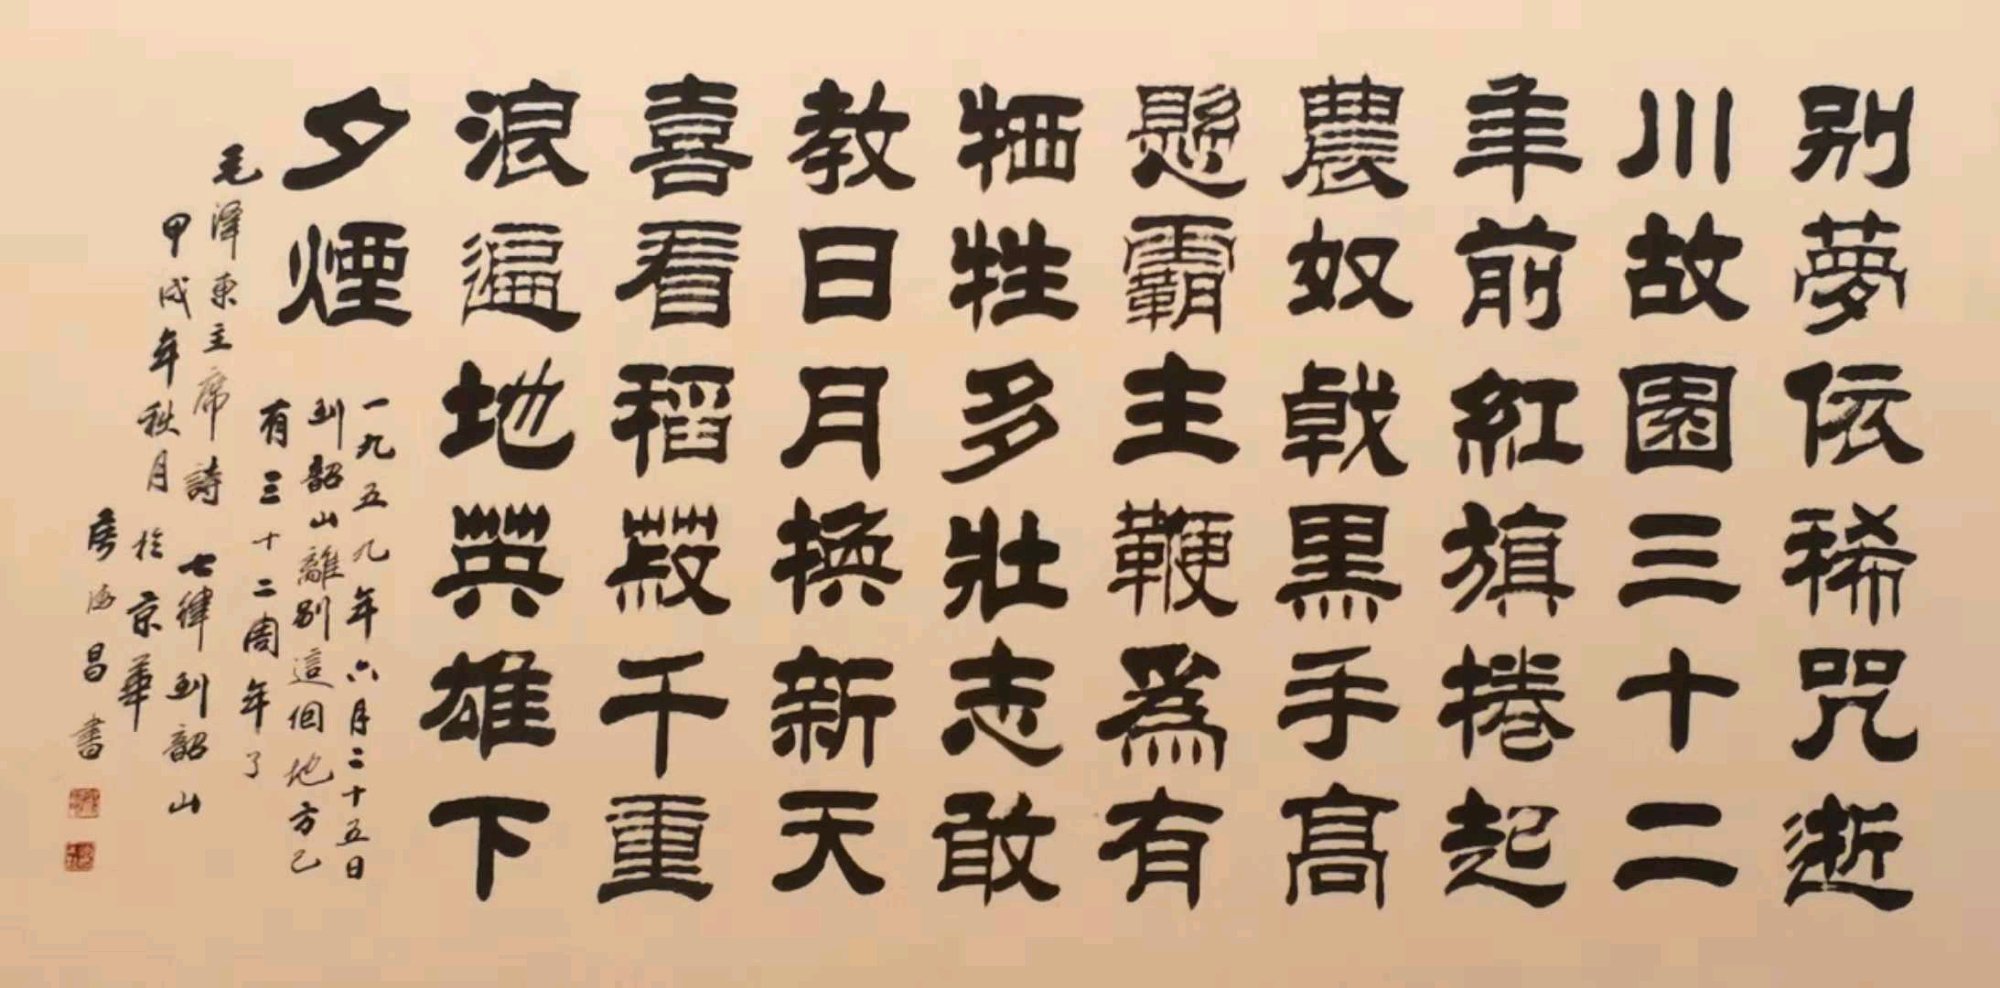 别夢依稀咒逝
川故園三十二
年前紅旗捲起
農奴戟黑手高
懸霸主鞭為有
牺牲多壯志敢
教日月換新天
喜看稻菽千重
浪遍地英雄下
夕煙
一九五九年六月二十五日
到韶山離別這個地方已
有三十二周年了
毛澤東主席詩七律到韶山
甲戌年秋月於京華
海昌書